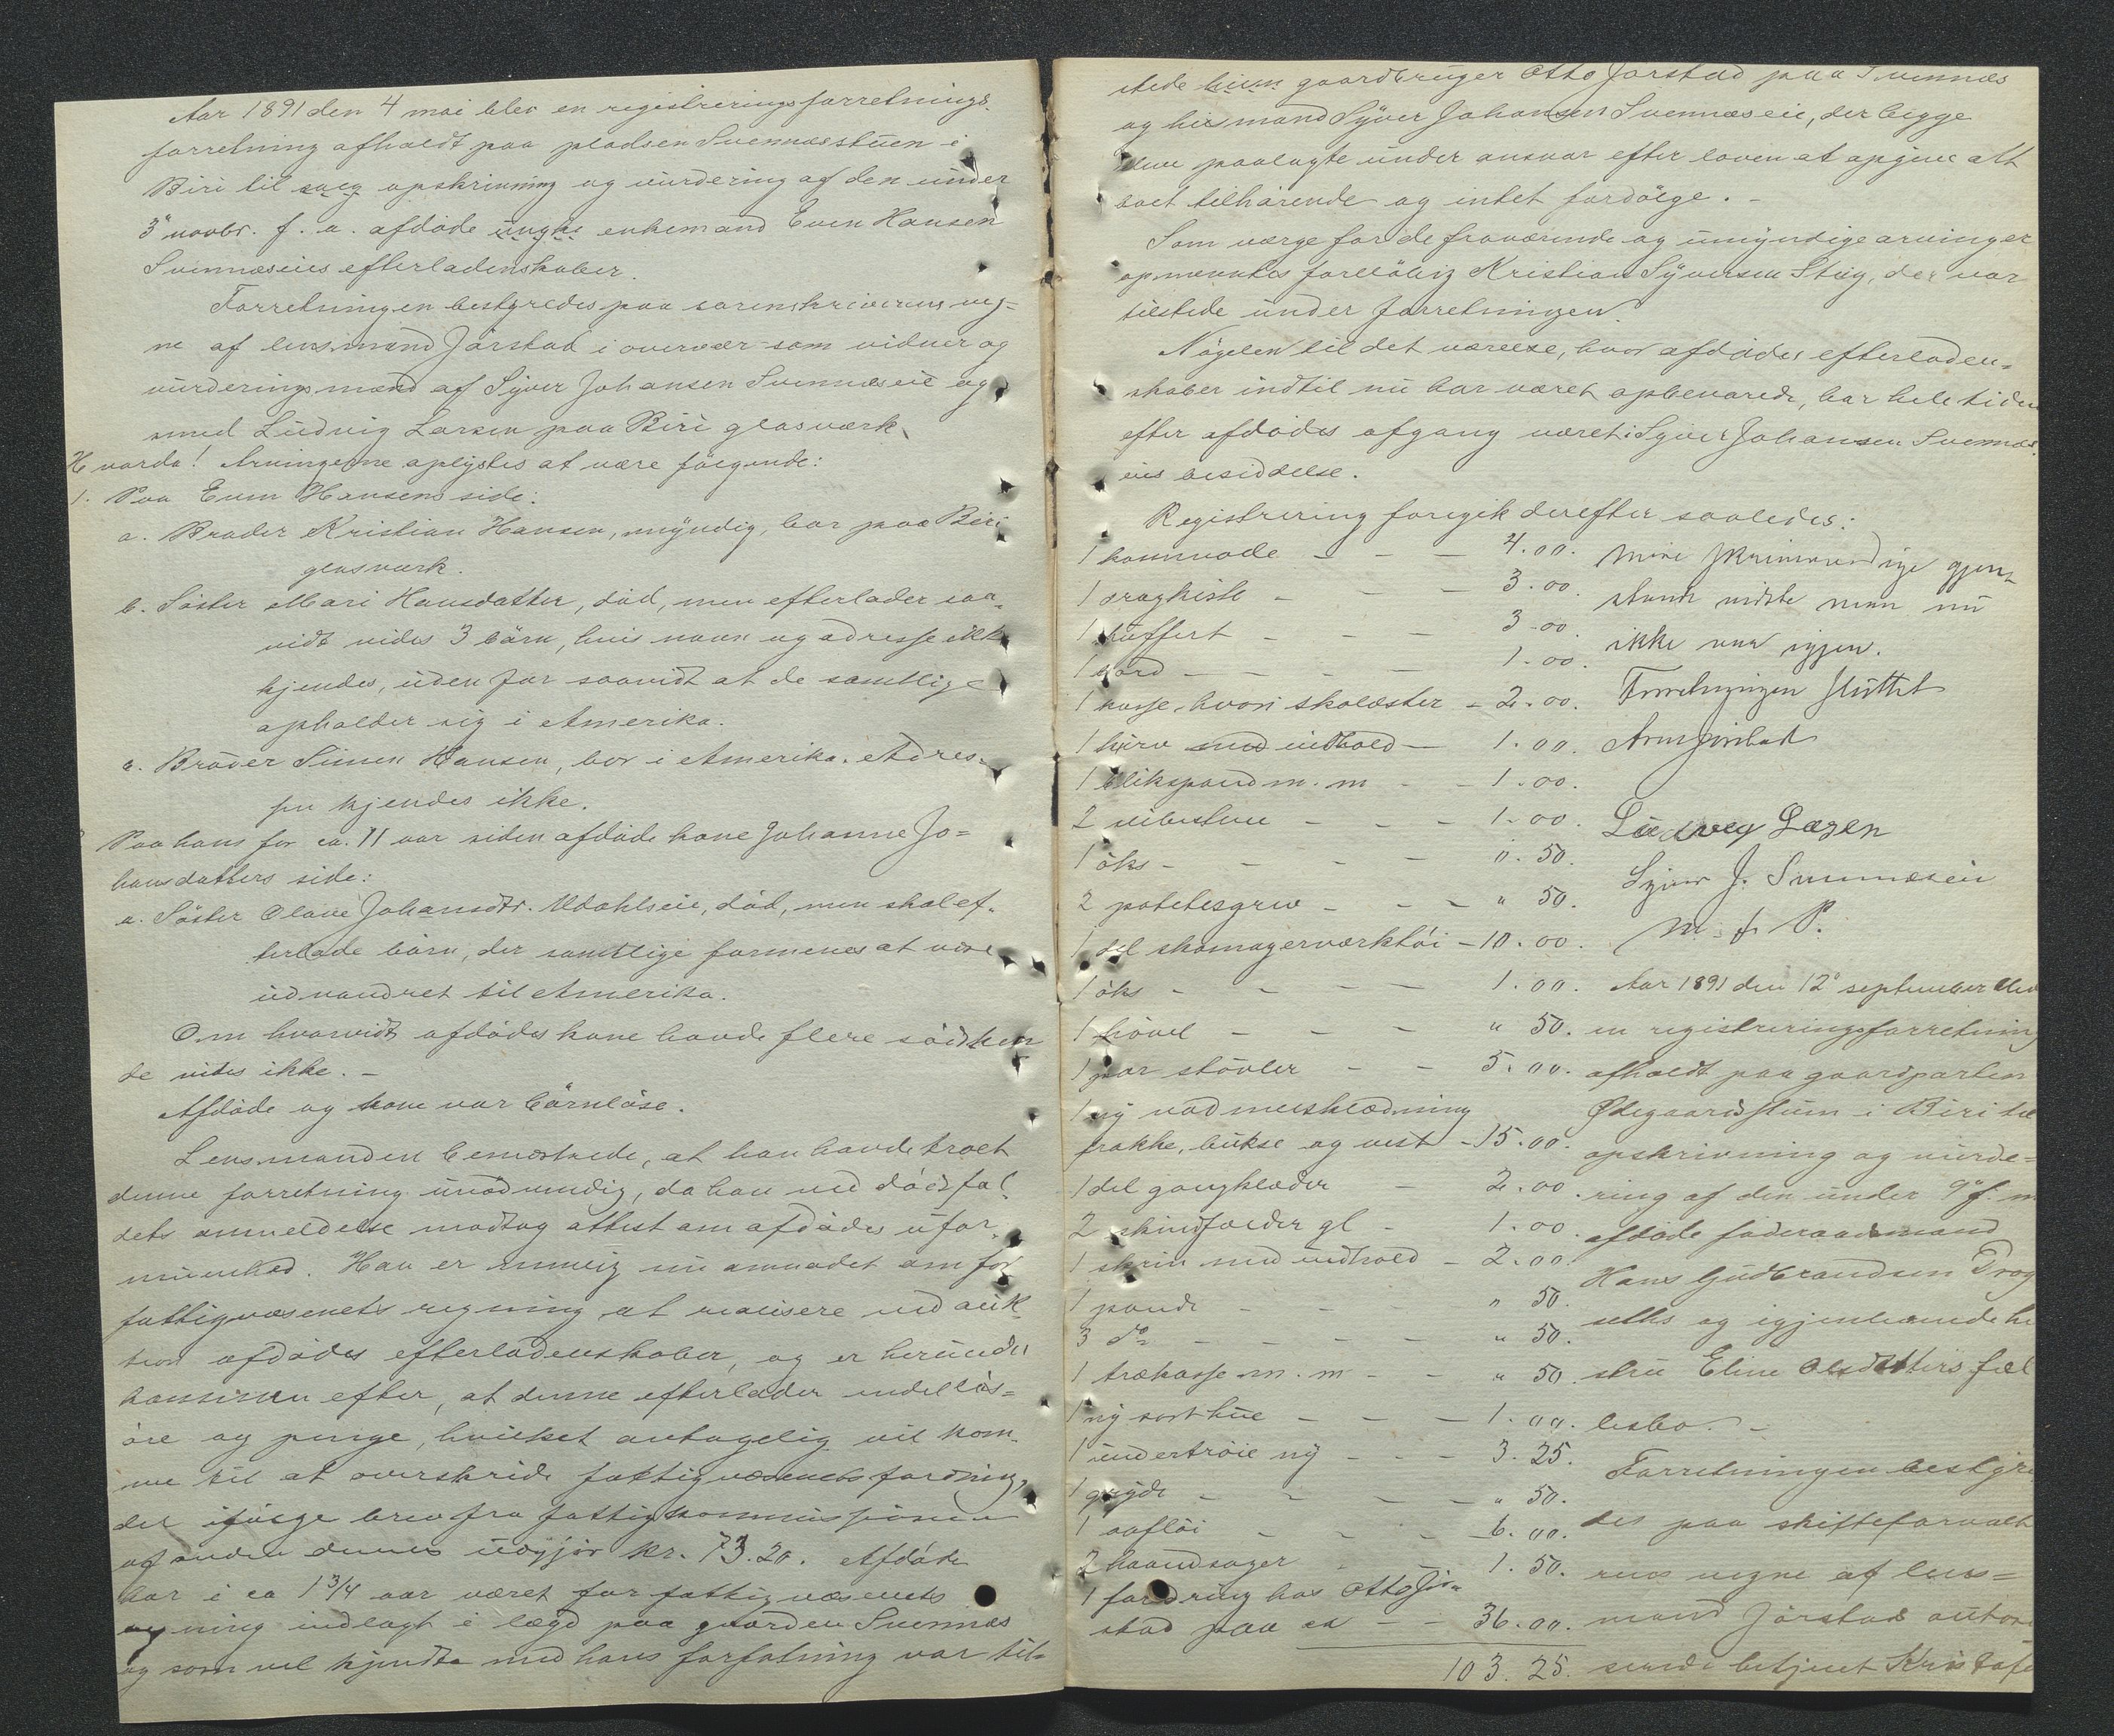 Aar 1891 den 4 mai blev en registreringsforretnings-
forretning afholdt paa pladsen Svennæsstuen i
Biri til salg opskrivning og vurdering af den under
3° novbr. f. a. afdøde ungka enkemand Even Hansen
Svennæseies efterladenskaber.
Forretningen bestyredes paa sorenskriverens veg-
ne af lensmand Jørstad i overvær som vidner og
vurderingsmænd af Syver Johansen Svennæseie og
smed Ludvig Larsen paa Biri glasværk.
Hvorda! Arvingerne oplystes at være følgende:
1. Paa Even Hansens side:
a. Broder Kristian Hansen, myndig, bor paa Biri
glasværk.
b. Søster Mari Hansdatter, død, men efterlader saa-
vidt vides 3 børn, hvis navn og adresse ikke
kjendes, uden for saavidt at de samtlige
opholder sig i Amerika.
c. Broder Simen Hansen, bor i Amerika. Adres-
sen kjendes ikke.
Paa hans for ca. 11 aar siden afdøde kone Johanne Jo-
hansdatters side:
a. Søster Olave Johansdtr. Mdahlseie, død, men skal ef-
terlade børn, der samtlige formenes at være
udvandret til Amerika.
Om hvorvidt afdødes kone havde flere sødsken
de vides ikke. -
Afdøde og kone var børnløse.
Lensmanden bemærkede, at han havde troet
denne forretning unødvendig, da han ved dødsfal-
dets anmeldelse modtog attest om afdødes ufor-
muenhed. Han er imidlertid nu anmodet om for
fattigvæsenets regning at realisere ved auk-
tion afdødes efterladenskaber, og er herunder
kommen efter, at denne efterlader endel løs-
øre og penge, hvilket antagelig vil kom-
me til at overskride fattigvæsenets fordring,
der ifølge brev fra fattigkommissionen
af anden dennes udgjør kr. 73.20. Afdøde
har i ca 1 3/4 aar været for fattigvæsenets
regning indlagt i lægd paa gaarden Svennæs
og som vel kjendte med hans forfatning var til-
stede hum gaardbruger Otto Jørstad paa Svennæs
og husmand Syver Johansen Svennæseie, der begge
blev paalagte under ansvar efter loven at opgive alt
boet tilhørende og intet fordølge. -
Som værge for de fraværende og umyndige arvinger
opnævntes foreløbig Kristian Syversen Stug, der var
tilstede under forretningen.
Nøgelen til det værelse, hvor afdødes efterladen-
skaber indtil nu har været opbevarede, har hele tiden
efter afdødes afgang været i Syver Johansen Svennæs-
eies besiddelse.
Registrering foregik derefter saaledes:
1 kommode - - - 4.00.
1 dragkiste - - - 3.00.
1 kuffert - - - 3.00.
1 bord - - - 1.00.
1 kasse, hvori skolæster - 2.00.
1 kurv med indhold - 1.00.
1 blikspand m. m - - 1.00.
2 - - - 1.00.
1 øks - - - - 0.50.
2 potetesgrev - - - " 50.
1 del skomagerværktøi - 10.00.
1 øks - - - - 1.00.
1 høvel - - - " 50.
1 par støvler - - 5.00.
1 ny vadmelsklædning
frakke, bukse og vest - 15.00.
1 del gangklæder - 2.00.
2 skindfælder gl - 1.00
1 skrin med indhold - 2.00.
1 pande - - - " 50.
3 do - - - - " 50.
1 trækasse m. m - - " 50.
1 ny sort hue - - - 1.00.
1 undertrøie ny - - - 3.25.
1 gryde - - - - " 50.
1 - - - 6.00.
2 haandsager - 1.50.
1 fordring hos Otto Jør-
stad paa ca - - 36.00.
103.25.
Mere skrivværdige gjen-
stande vidste man nu
ikke var igjen.
Forretningen sluttet
Arne Jørstad
Ludveg Lazen
Syver J. Svennæseie
m. f. P.
Aar 1891 den 12° september blev
en registreringsforretning
afholdt paa gaardparten
Ødegaardsstuen i Biri til
opskrivning og vurde-
ring af den under 9° f. m
afdøde føderaadsmand
Hans Gudbrandsen Drog
seths og igjenlevende hu
stru Eline Olsdatters fæl
lesbo. -
Forretningen bestyre
des paa skifteforvalte
rens vegne af lens-
mand Jørstads autori
serede betjent Kristofe